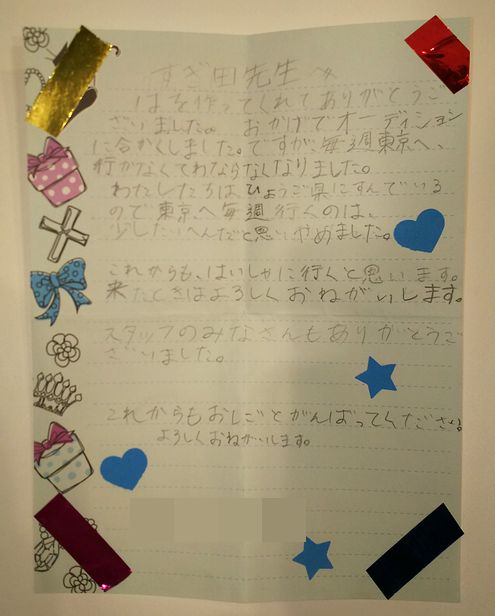 すぎ田先生へ
はを作ってくれてありがとうご
ざいました。 おかげでオーディション
に合かくしました。ですが、毎週東京へ、
行かなくてわならなくなりました。
わたしたちは、ひょうご県にすんでいる
ので東京へ毎週行くのは、
少したいへんだと思いやめました。
これからも、はいしゃに行くと思います。
来たときはよろしくおねがいします。
スタッフのみなさんもありがとうご
ざいました。
これからもおしごとがんばってください。
よろしくおねがいします。